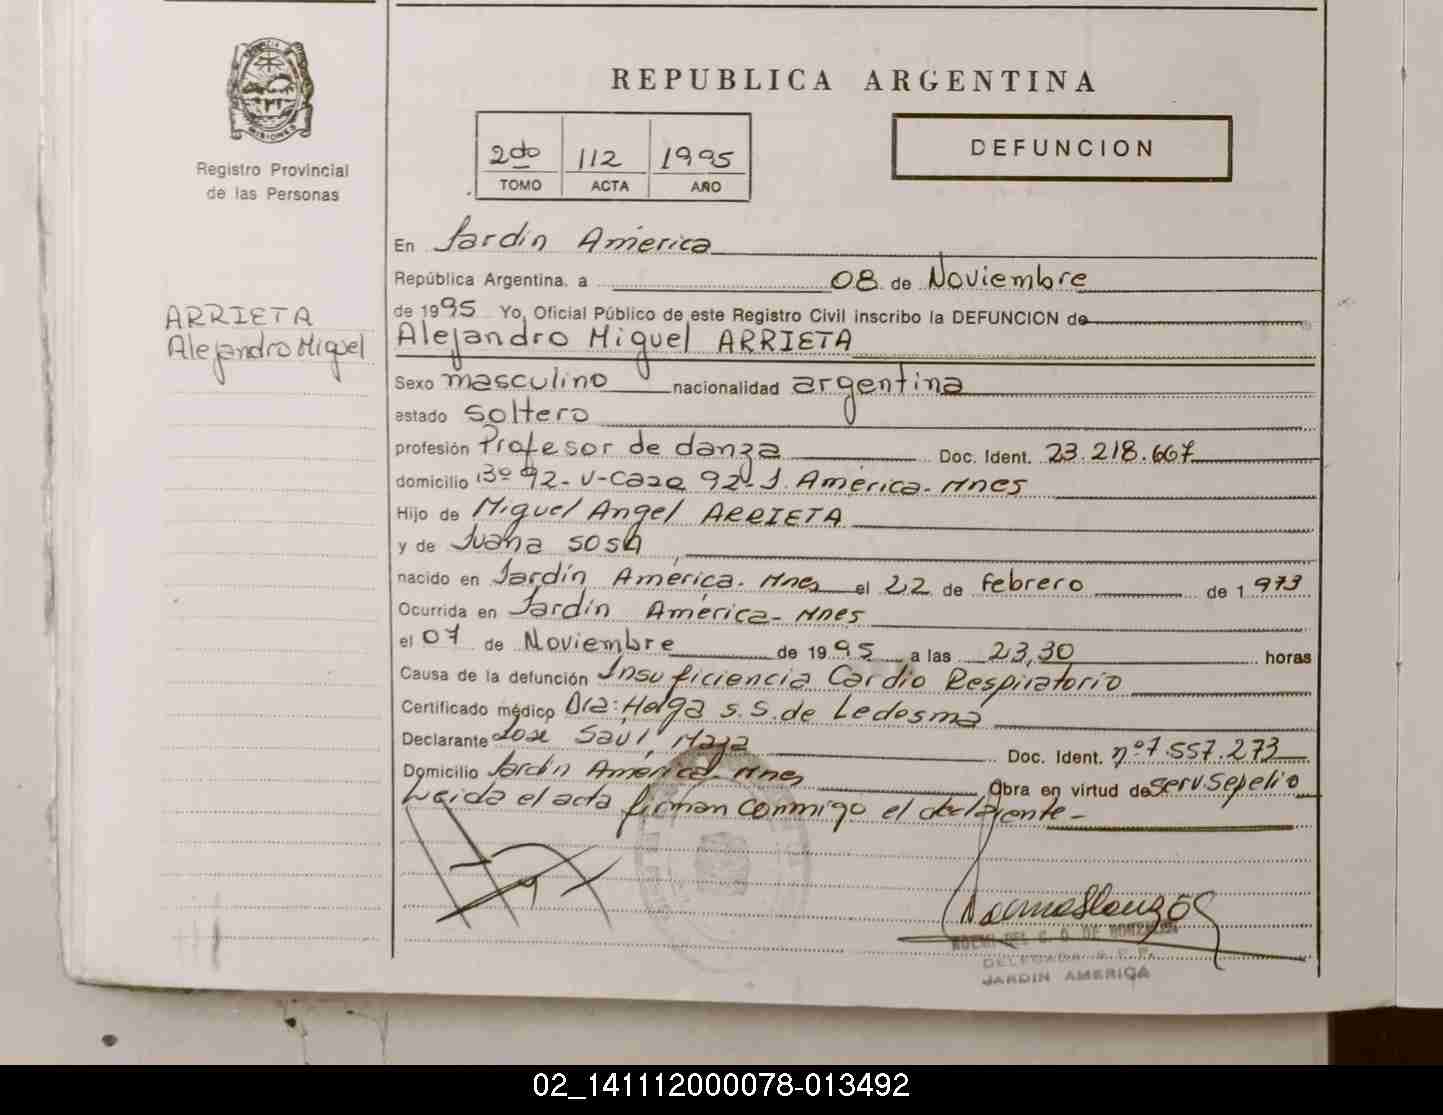 PROVINCIA DE
MISIONES
Registro Provincial
de las Personas
REPUBLICA ARGENTINA
2do 112 1995
TOMO ACTA AÑO
DEFUNCION
En Jardin America
República Argentina, a 08 de Noviembre
de 1995 Yo, Oficial Público de este Registro Civil inscribo la DEFUNCION de
ARRIETA
Alejandro Miguel
Alejandro Miguel ARRIETA
Sexo masculino nacionalidad argentina
estado soltero
profesión Profesor de danza Doc. Ident. 23.218.667
domicilio Bº 92-V-Casa 92-J. América-Mnes
Hijo de Miguel Angel ARRIETA
y de Juana SOSA
nacido en Jardín América. Mnes el 22 de febrero de 1973
Ocurrida en Jardín América-Mnes
el 07 de Noviembre de 1995 a las 23,30 horas
Causa de la defunción Insuficiencia Cardio Respiratorio
Certificado médico Dra: Helga S.S. de Ledesma
Declarante José Saúl Maza Doc. Ident. nº 7.557.273
Domicilio Jardín América-Mnes Obra en virtud de serv.sepelio
Leida el acta firman conmigo el declarante-
DELEGADA R.P.P.
JARDIN AMERICA
02_141112000078-013492